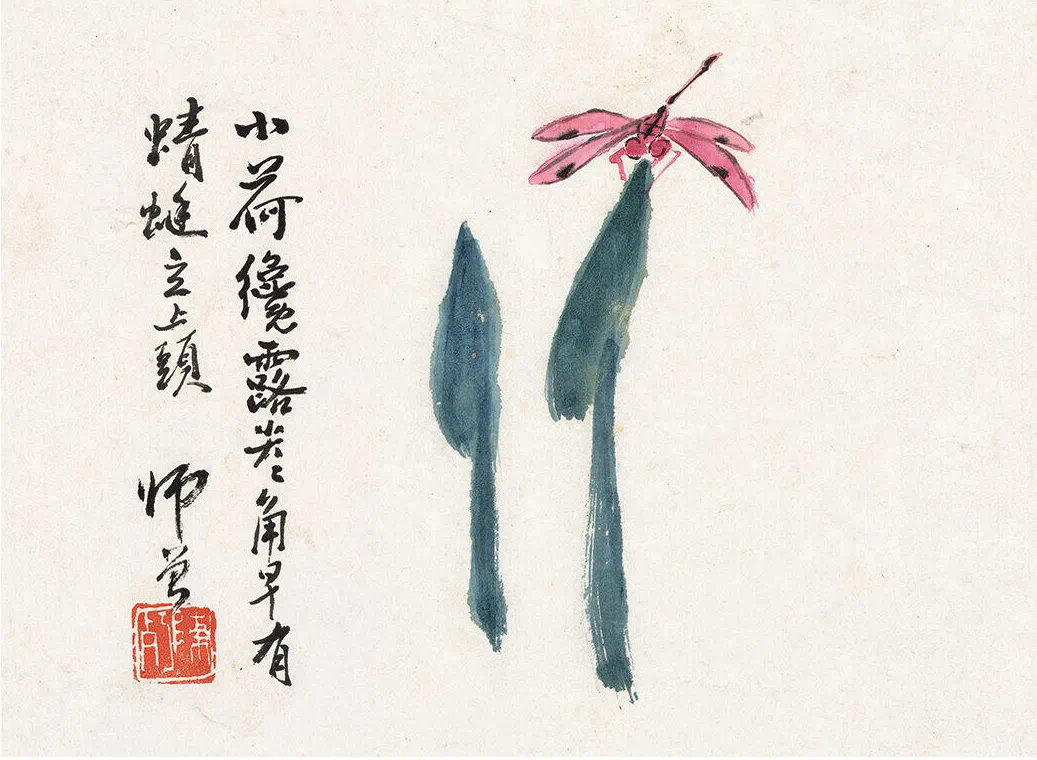 小荷纔露尖〻角早有
蜻蜓立上頭 师曾